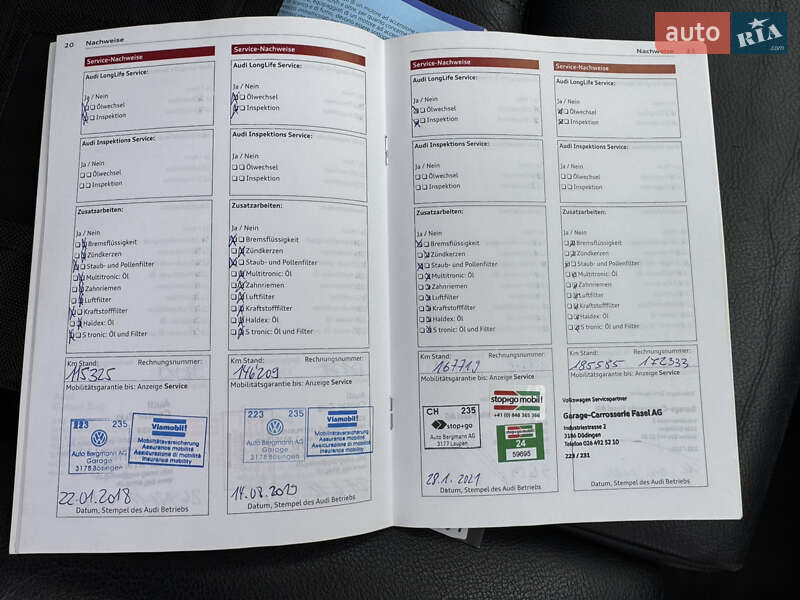 auto RIA .com
20 Nachweise
Service-Nachweise
Audi LongLife Service:
Ja / Nein
Ölwechsel
Inspektion
Audi Inspektions Service:
Ja / Nein
Ölwechsel
Inspektion
Zusatzarbeiten:
Ja / Nein
Bremsflüssigkeit
Zündkerzen
Staub- und Pollenfilter
Multitronic: Öl
Zahnriemen
Luftfilter
Kraftstofffilter
Haldex: Öl
S tronic: Öl und Filter
Km Stand: Rechnungsnummer:
115325
Mobilitätsgarantie bis: Anzeige Service
223 235
Auto Bergmann AG
Garage
3178 Bösingen
Viamobil!
Mobilitätsversicherung
Assurance mobilité
Assicurazione di mobilità
Insurance mobility
22.01.2018
Datum, Stempel des Audi Betriebs
Service-Nachweise
Audi LongLife Service:
Ja / Nein
Ölwechsel
Inspektion
Audi Inspektions Service:
Ja / Nein
Ölwechsel
Inspektion
Zusatzarbeiten:
Ja / Nein
Bremsflüssigkeit
Zündkerzen
Staub- und Pollenfilter
Multitronic: Öl
Zahnriemen
Luftfilter
Kraftstofffilter
Haldex: Öl
S tronic: Öl und Filter
Km Stand: Rechnungsnummer:
146209
Mobilitätsgarantie bis: Anzeige Service
223 235
Auto Bergmann AG
Garage
3178 Bösingen
Viamobil!
Mobilitätsversicherung
Assurance mobilité
Assicurazione di mobilità
Insurance mobility
14.08.2019
Datum, Stempel des Audi Betriebs
Nachweise
Service-Nachweise
Audi LongLife Service:
Ja / Nein
Ölwechsel
Inspektion
Audi Inspektions Service:
Ja / Nein
Ölwechsel
Inspektion
Zusatzarbeiten:
Ja / Nein
Bremsflüssigkeit
Zündkerzen
Staub- und Pollenfilter
Multitronic: Öl
Zahnriemen
Luftfilter
Kraftstofffilter
Haldex: Öl
S tronic: Öl und Filter
Km Stand: Rechnungsnummer:
167719
Mobilitätsgarantie bis: Anzeige Service
CH 235
stop+go
Auto Bergmann AG
3177 Laupen
stop+go mobil!
+41 (0) 848 365 366
24
59695
28.1.2021
Datum, Stempel des Audi Betriebs
Service-Nachweise
Audi LongLife Service:
Ja / Nein
Ölwechsel
Inspektion
Audi Inspektions Service:
Ja / Nein
Ölwechsel
Inspektion
Zusatzarbeiten:
Ja / Nein
Bremsflüssigkeit
Zündkerzen
Staub- und Pollenfilter
Multitronic: Öl
Zahnriemen
Luftfilter
Kraftstofffilter
Haldex: Öl
S tronic: Öl und Filter
Km Stand: Rechnungsnummer:
185585 172333
Mobilitätsgarantie bis: Anzeige Service
Volkswagen Servicepartner
Garage-Carrosserie Fasel AG
Industriestrasse 2
3186 Düdingen
Telefon 026 492 52 10
223 / 231
Datum, Stempel des Audi Betriebs